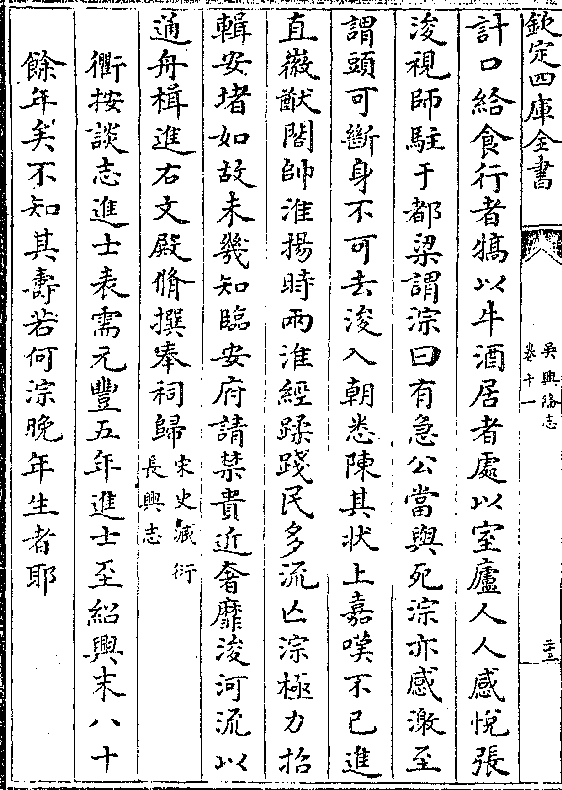 欽定四庫全書
吳興備志
卷十一
計口給食行者犒以牛酒居者處以室廬人人感悅張
浚視師駐于都梁謂淙曰有急公當與死淙亦感激至
謂頭可斷身不可去浚入朝悉陳其狀上嘉嘆不已進
直徽猷閣帥淮揚時兩淮經蹂踐民多流亡淙極力招
輯安堵如故未幾知臨安府請禁貴近奢靡浚河流以
通舟楫進右文殿脩撰奉祠歸
宋史減衍
長興志
衢按談志進士表需元豐五年進士至紹興末八十
餘年矣不知其壽若何淙晚年生者耶